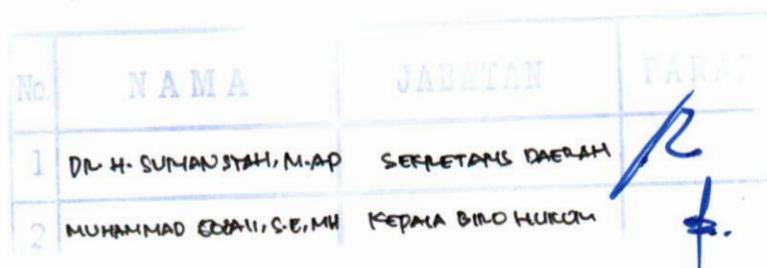 No. NAMA JABATAN PARAF
1 DR. H. SURIANSYAH, M.AP SEKRETARIS DAERAH
2 MUHAMMAD S.E, MH KEPALA BIRO HUKUM